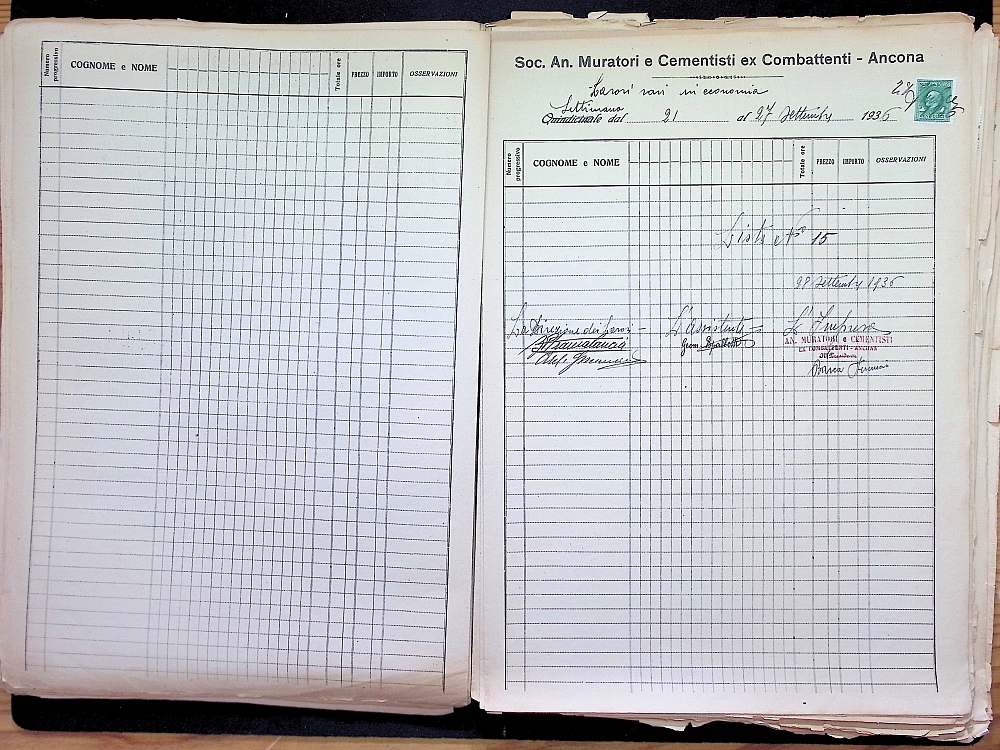 Numero progressivo COGNOME e NOME Totale ore PREZZO IMPORTO OSSERVAZIONI
Soc. An. Muratori e Cementisti ex Combattenti - Ancona
Lavori vari in economia
Settimana
Quindicinale dal 21 al 27 Settembre 1936
Numero progressivo COGNOME e NOME Totale ore PREZZO IMPORTO OSSERVAZIONI
Lista N° 15
28 Settembre 1936
La Direzione dei Lavori L'assistente L'Impresa
AN. MURATORI e CEMENTISTI
EX COMBATTENTI - ANCONA
Geom.